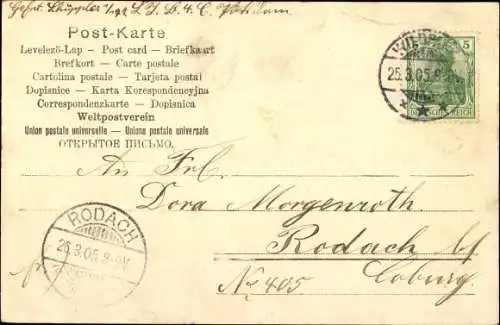 Post-Karte
Levelező-Lap — Post card — Briefkaart
Brefkort — Carte postale
Cartolina postale — Tarjeta postal
Dopisnice — Karta Korespondencyjna
Correspondenzkarte — Dopisnica
Weltpostverein
Union postale universelle — Unione postale universale
ОТКРЫТОЕ ПИСЬМО.
5
25.3.05.
DEUTSCHES REICH
An Frl.
Dora Morgenroth.
Rodach b/
Coburg.
No 405
fr.
RODACH
26.3.05. 8-9V.